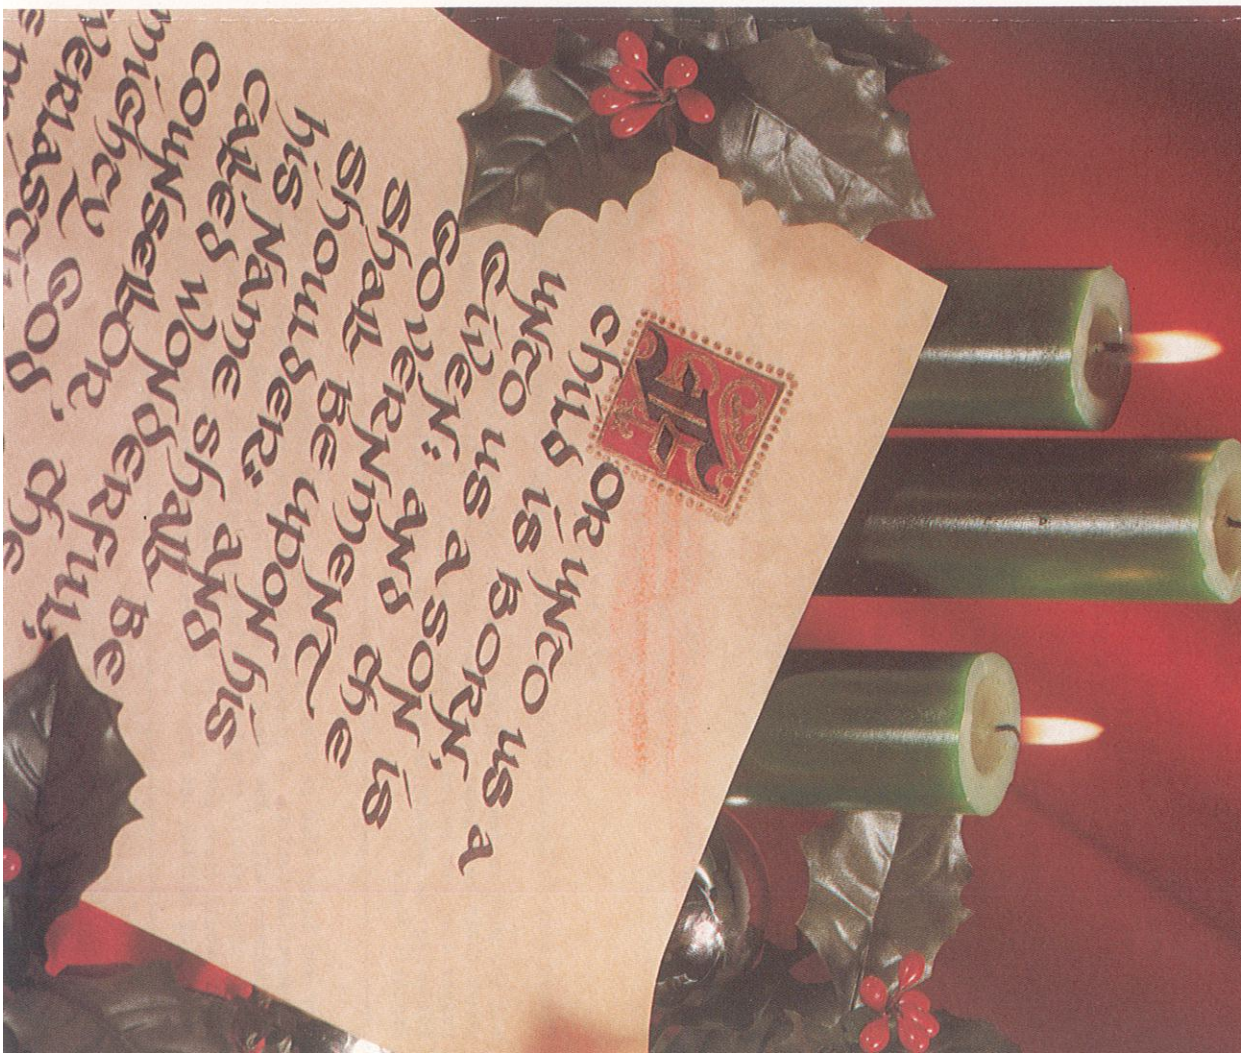 For unto us a
child is born,
unto us a son is
given: and the
government
shall be upon his
shoulder: and
his name shall be
called wonderful,
counsellor the
mighty God, the
verlasti